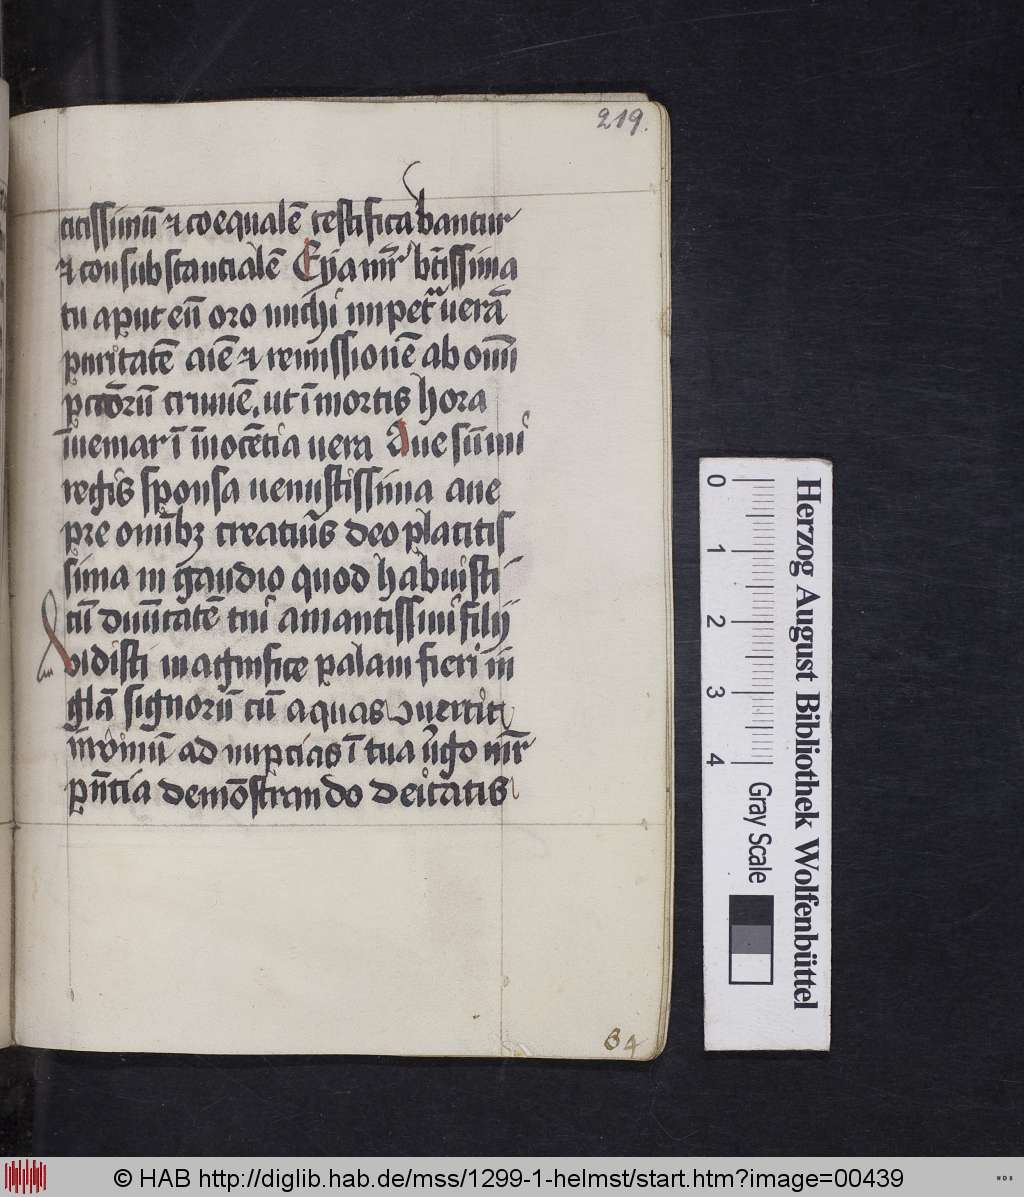 219.
citissimū ⁊ coequalē testificabantur
⁊ consubstancialē Eya mr̄ btīssima
tu aput eū oro michi impetra uerā
puritatē aīe ⁊ remissionē ab omī
pctōrū crimīe, ut ī mortis hora
īuemar ī īnocētia uera Aue sūmi
regis sponsa uenustissima aue
pre omībꝫ creaturis deo placitis
sima in gaudio quod habuisti
cū diuītatē tui amantissimi filij
uidisti magnifice palam fieri in
glā signorū cū aquas ɔuertit
in vinū ad nupcias ī tua ugō mr̄
pn̄tia demōstrando deitatis
64
Herzog August Bibliothek Wolfenbüttel
0 1 2 3 4
Gray Scale
© HAB http://diglib.hab.de/mss/1299-1-helmst/start.htm?image=00439